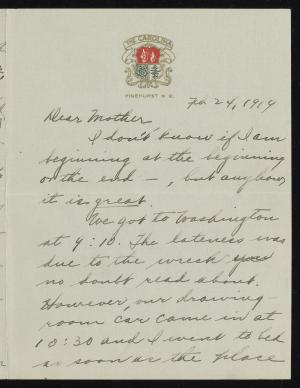 THE CAROLINA
PINEHURST N. C.
Feb 24, 1919
Dear Mother
I don't know if I am
beginning at the beginning
or the end -, but anyhow,
it is great.
We got to Washington
at 9:10. The lateness was
due to the wreck you
no doubt read about.
However, our drawing-
room car came in at
10:30 and I went to bed
as soon as the place